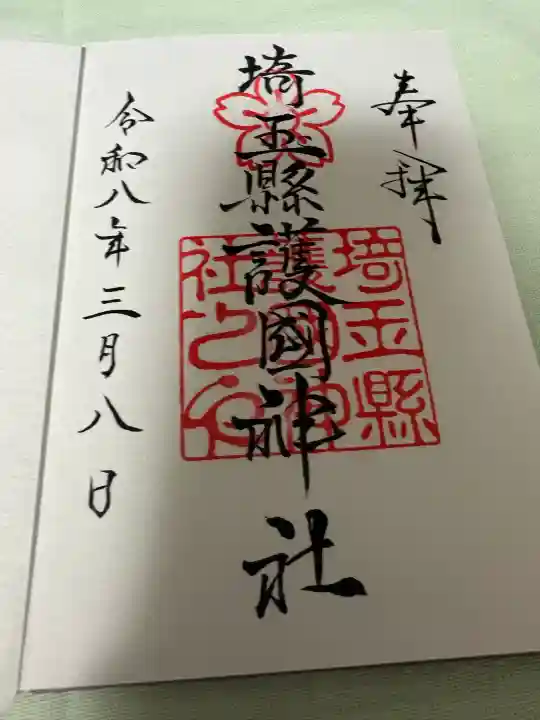 奉拝
埼玉縣護國神社
埼玉縣
護國神
社之印
令和八年三月八日